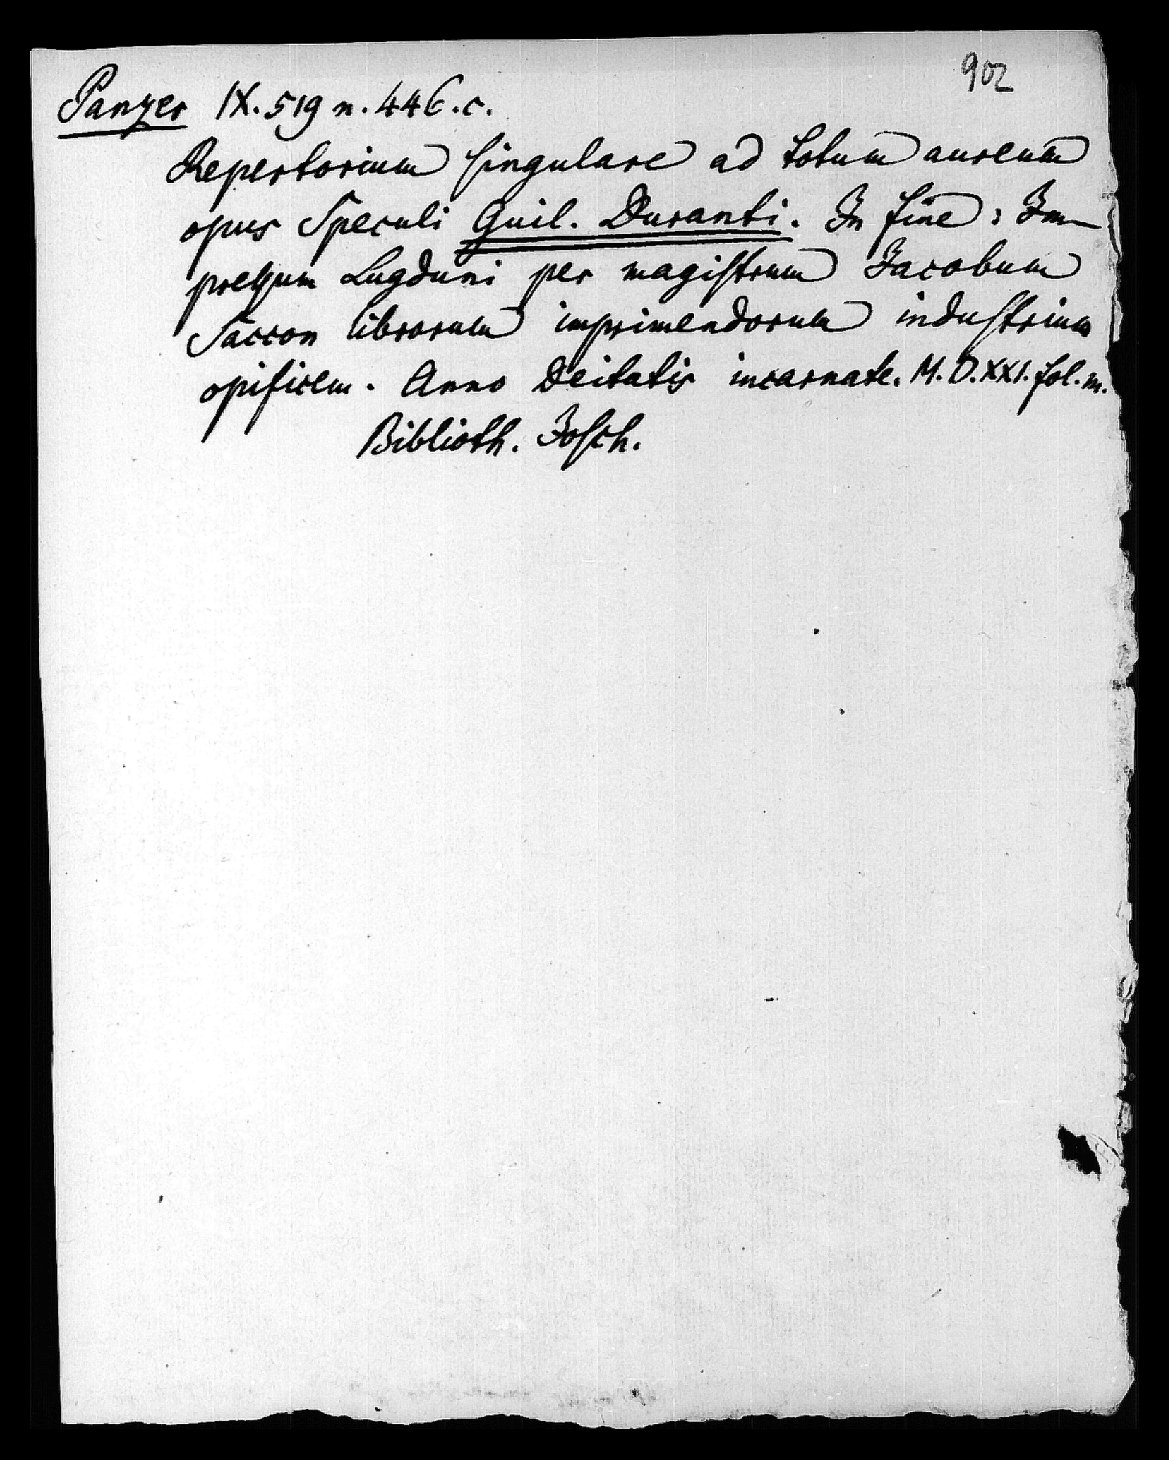 902
Panzer IX. 519 n. 446. c.
Repertorium singulare ad totum aureum
opus Speculi Guil. Duranti. In fine: Im-
pressum Lugduni per magistrum Jacobum
Saccon librorum imprimendorum industrium
opificem. Anno Deitatis incarnate. M.D.XXI. fol. m.
Biblioth. Josch.